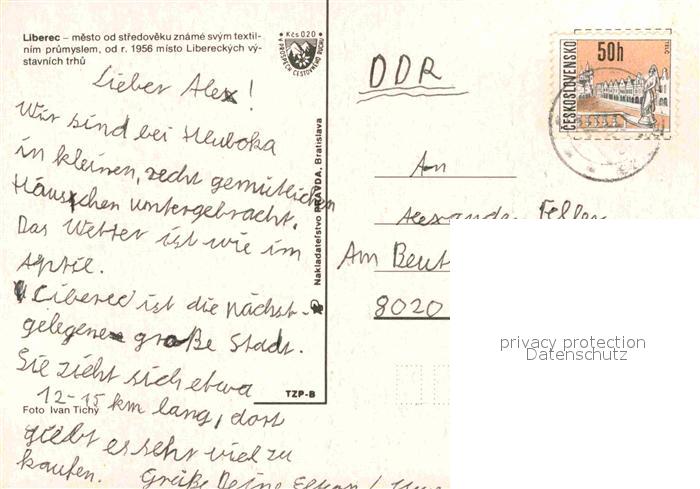 Liberec – město od středověku známé svým textil-
ním průmyslem, od r. 1956 místo Libereckých vý-
stavních trhů
Kčs 0.20
V PROSPĚCH CESTOVNÍHO RUCHU
Lieber Alex!
Wir sind bei Hluboka
in kleinen, recht gemütlichen
Häuschen untergebracht.
Das Wetter ist wie im
April.
Liberec ist die nächst-
gelegene große Stadt.
Sie zieht sich etwa
12-15 km lang, dort
giebt es sehr viel zu
kaufen. Grüße Deine Eltern /
Foto Ivan Tichý
Nakladateľstvo PRAVDA, Bratislava
TZP-B
DDR
ČESKOSLOVENSKO
50h
TELČ
An
Alexander
Am
8020
privacy protection
Datenschutz